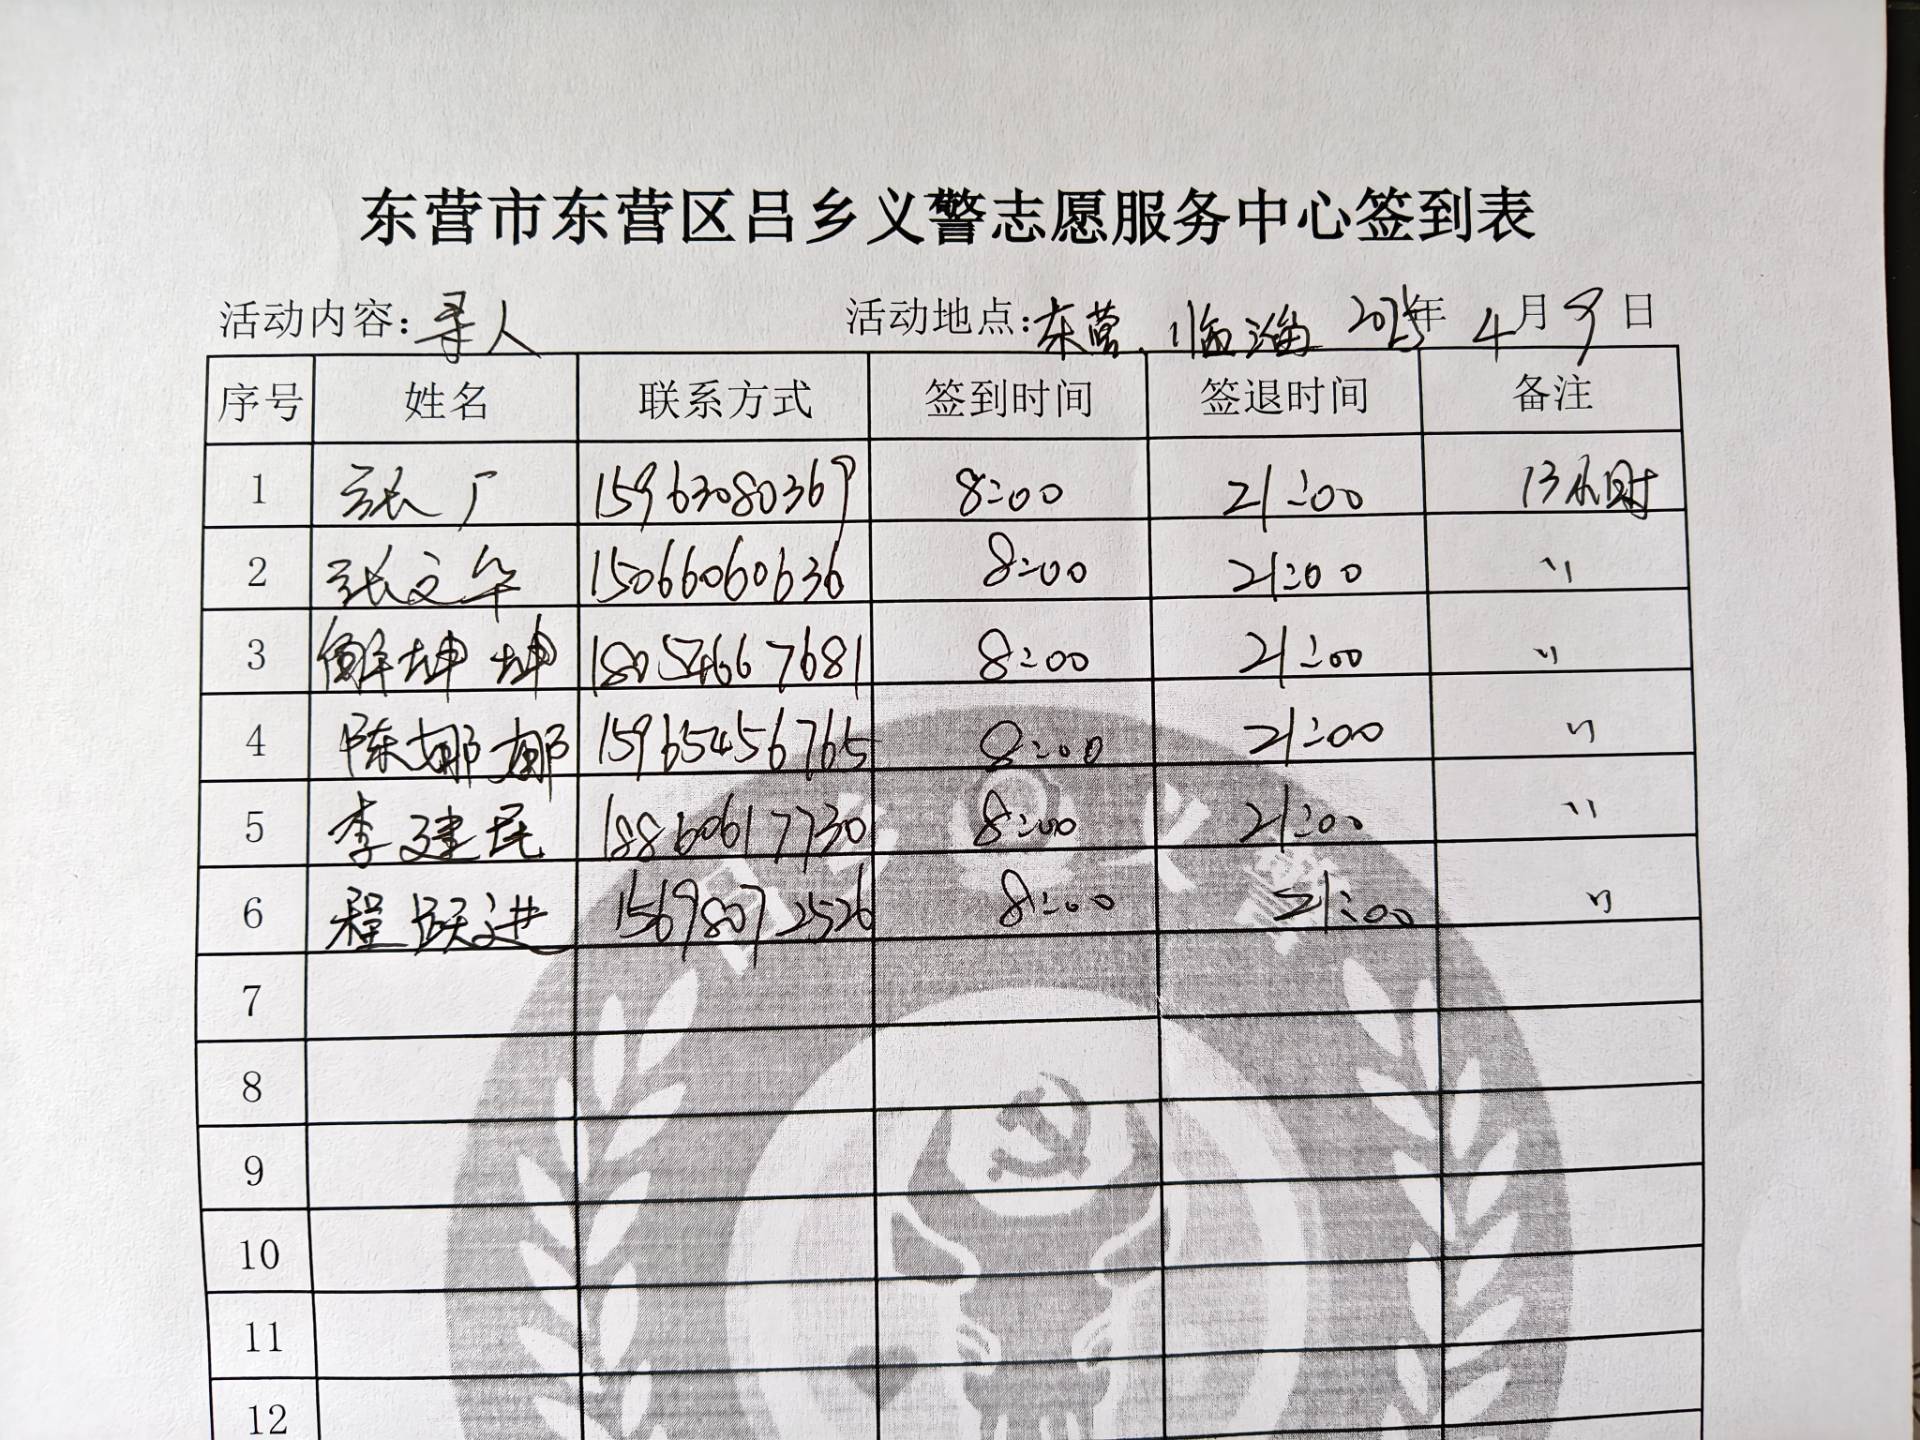 东营市东营区吕乡义警志愿服务中心签到表
活动内容:寻人 活动地点:东营、临淄 2025年 4月9日
序号 姓名 联系方式 签到时间 签退时间 备注
1 张广 15963080369 8:00 21:00 13小时
2 张文华 15066060636 8:00 21:00 〃
3 解坤坤 18054667681 8:00 21:00 〃
4 陈娜娜 15965456765 8:00 21:00 〃
5 李建民 18860617730 8:00 21:00 〃
6 程跃进 15698072526 8:00 21:00 〃
7
8
9
10
11
12